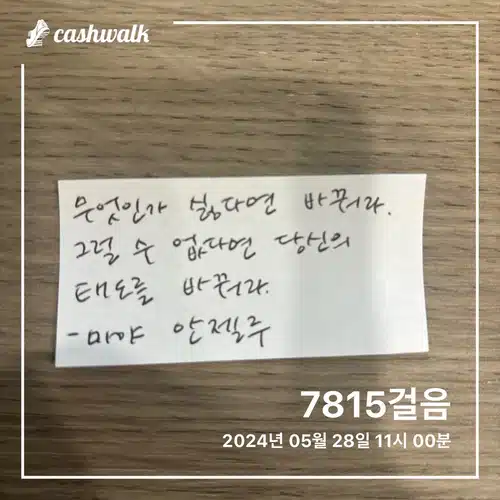 cashwalk
무엇인가 싫다면 바꿔라.
그럴 수 없다면 당신의
태도를 바꿔라.
- 마야 안젤루
7815걸음
2024년 05월 28일 11시 00분